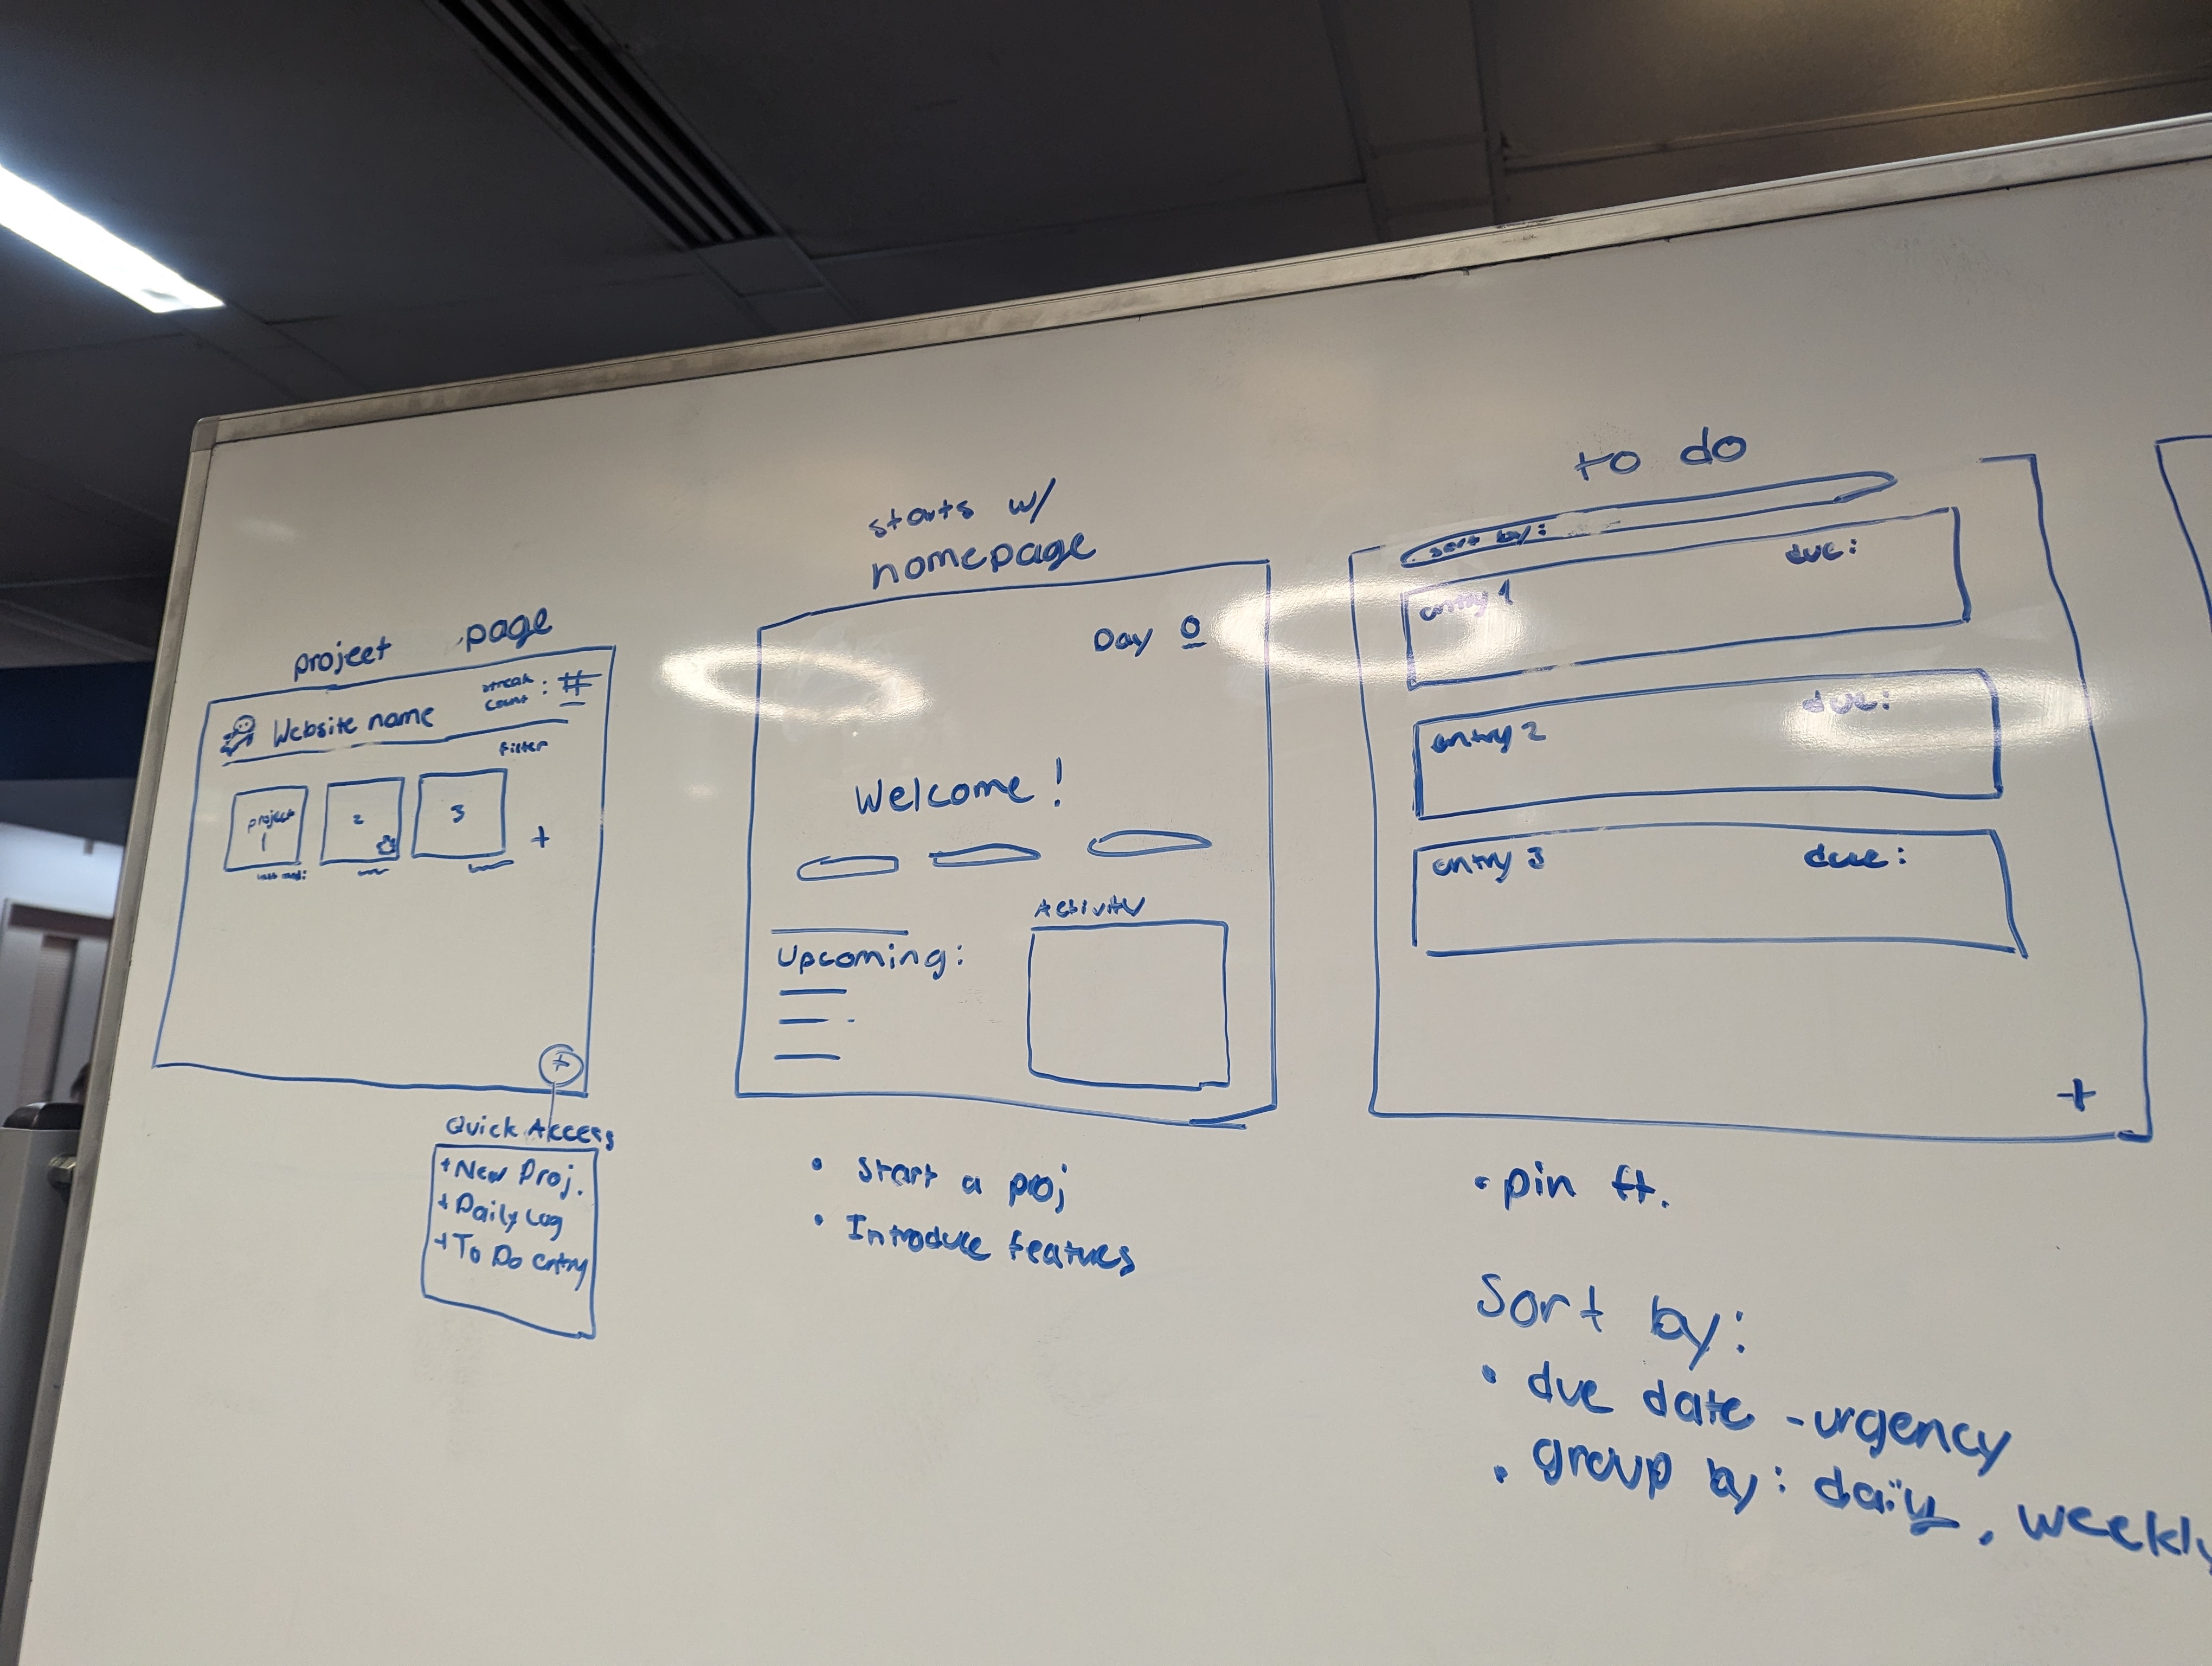 project page
Website name
streak count : #
filter
project 1
2
3
+
last mod:
+
Quick Access
+ New Proj.
+ Daily Log
+ To Do entry
starts w/
homepage
Day 0
Welcome!
Upcoming:
Activity
• start a proj
• Introduce features
to do
sort by:
entry 1 due:
entry 2 due:
entry 3 due:
+
• pin ft.
Sort by:
• due date - urgency
• group by: daily, weekly